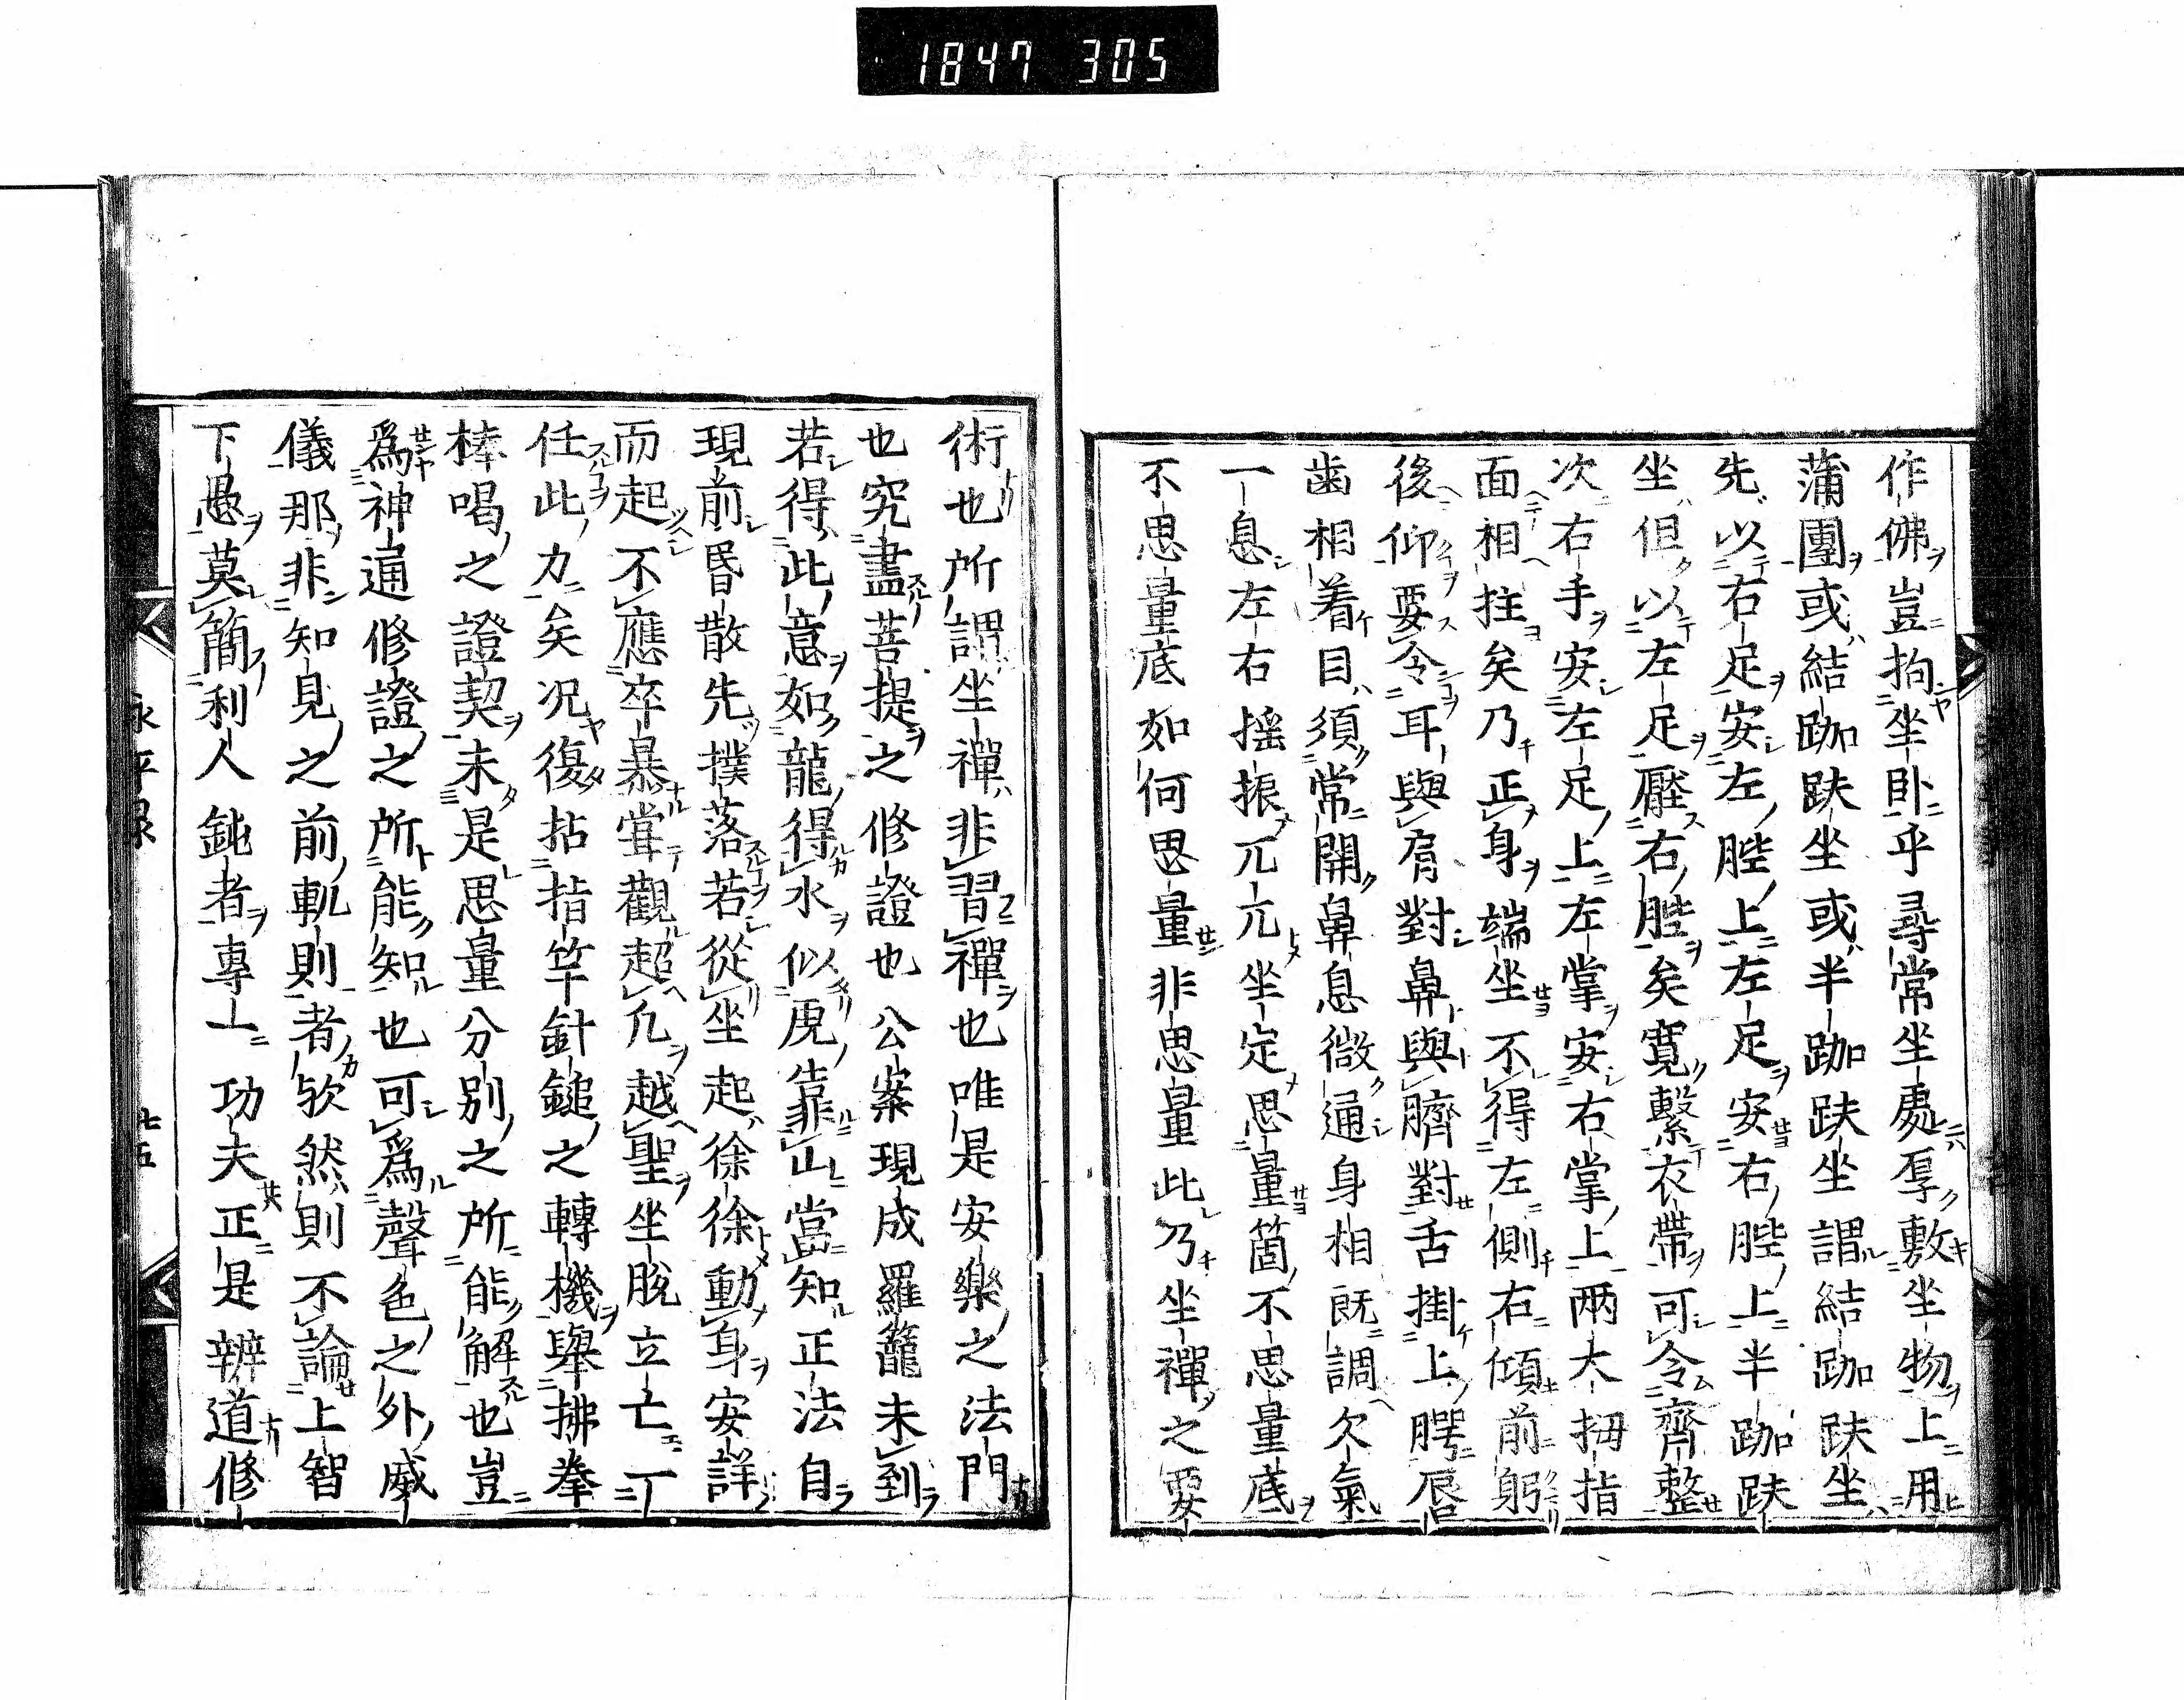 1847 305
作佛豈拘坐臥乎尋常坐處厚敷坐物上用
蒲團或結跏趺坐或半跏趺坐謂結跏趺坐
先以右足安左䏶上左足安右䏶上半跏趺
坐但以左足壓右䏶矣寛繫衣帶可令齊整
次右手安左足上左掌安右掌上兩大拇指
面相拄矣乃正身端坐不得左側右傾前躬
後仰要令耳與肩對鼻與臍對舌掛上腭唇
齒相着目須常開鼻息微通身相既調欠氣
一息左右搖振兀兀坐定思量箇不思量底
不思量底如何思量非思量此乃坐禪之要
術也所謂坐禪非習禪也唯是安樂之法門
也究盡菩提之修證也公案現成羅籠未到
若得此意如龍得水似虎靠山當知正法自
現前昏散先撲落若從坐起徐徐動身安詳
而起不應卒暴甞觀超凡越聖坐脫立亡一丁
任此力矣況復拈指竿針鎚之轉機舉拂拳
棒喝之證契未是思量分別之所能解也豈
爲神通修證之所能知也可爲聲色之外威
儀那非知見之前軌則者歟然則不論上智
下愚莫簡利人鈍者專一功夫正是辨道修
永平録
七五